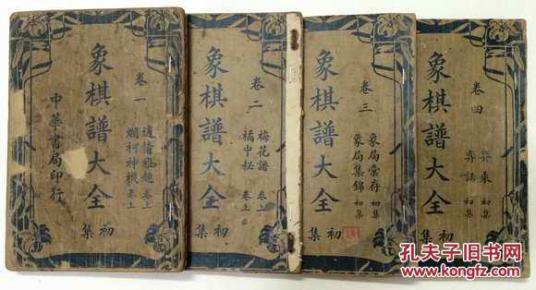 象棋譜大全
初集
卷一
適情雅趣 卷上
爛柯神機 卷上
中華書局印行
象棋譜大全
初集
卷二
梅花譜 卷上
橘中秘 卷上
象棋譜大全
初集
卷三
象局彙存 初集
象局集錦 初集
象棋譜大全
初集
卷四
弈乘 初集
弈話 初集
孔夫子旧书网
www.kongfz.com